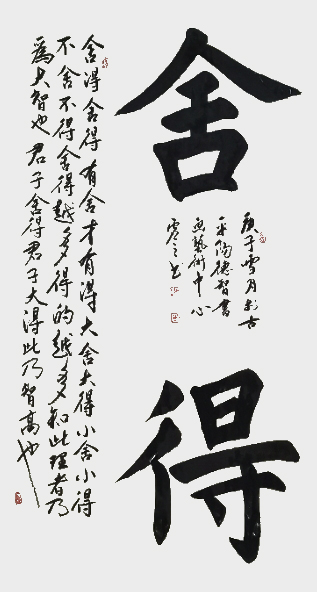 舍得
庚子雪月於古
平陶德智書
画藝術中心
舍得舍得有舍才有得大舍大得小舍小得
不舍不得舍得越多得的越多知此理者乃
為大智也君子舍得君子大得此乃智高也